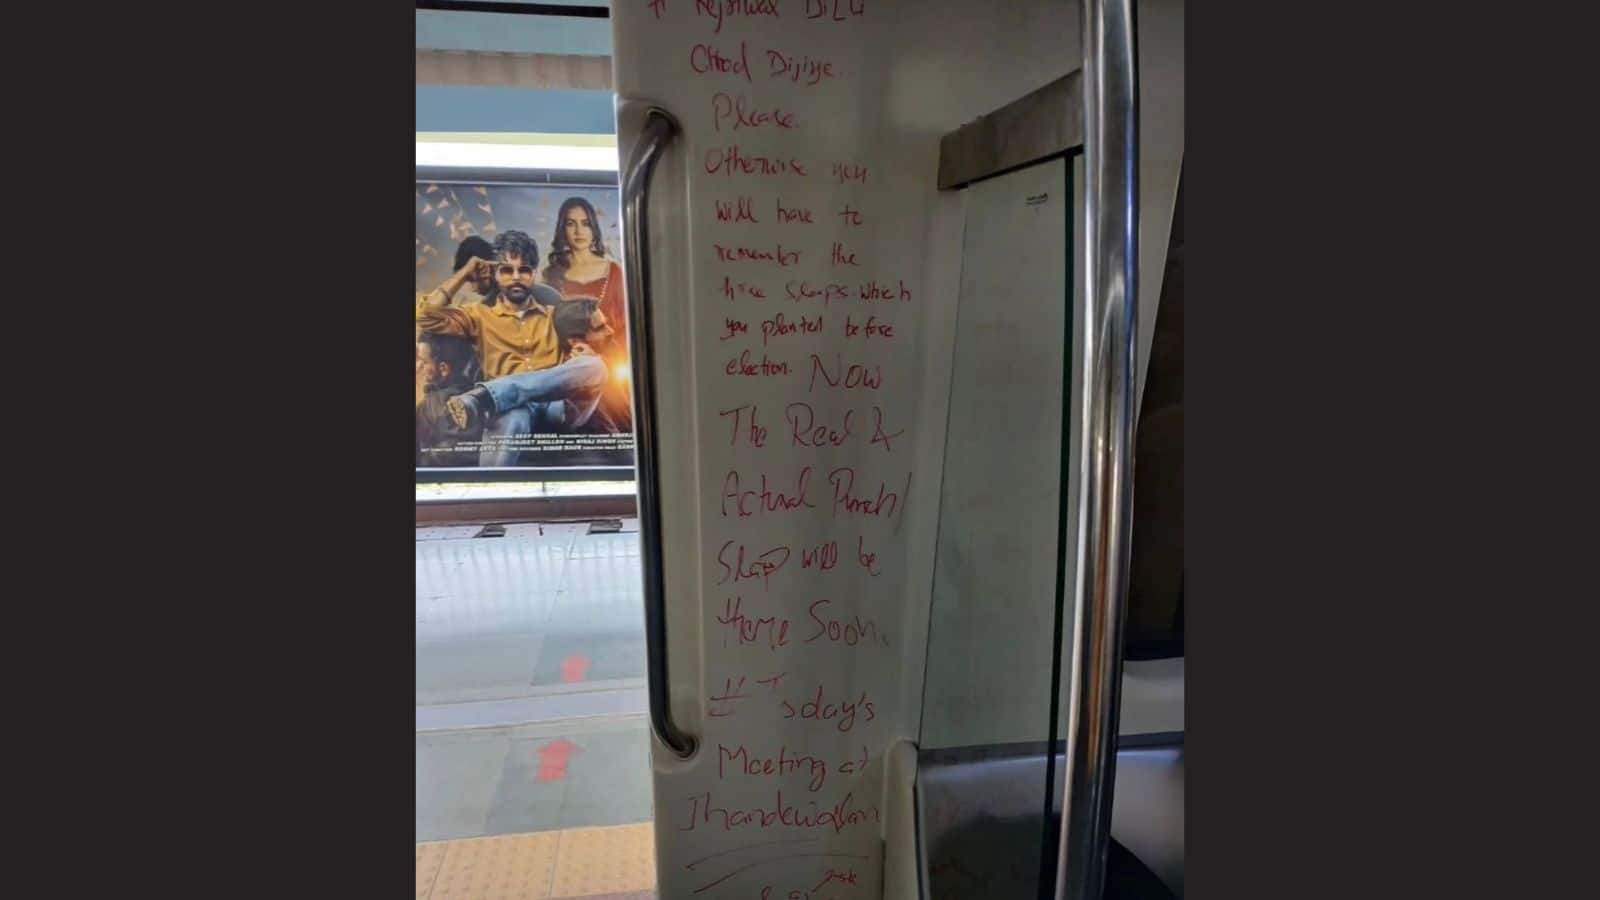 Kejriwal
Chod Dijiye.
Please.
Otherwise you
will have to
remember the
slaps which
you planted before
election. Now
The Real &
Actual Punch/
Slap will be
there Soon.
# Today's
Meeting at
Jhandewalan